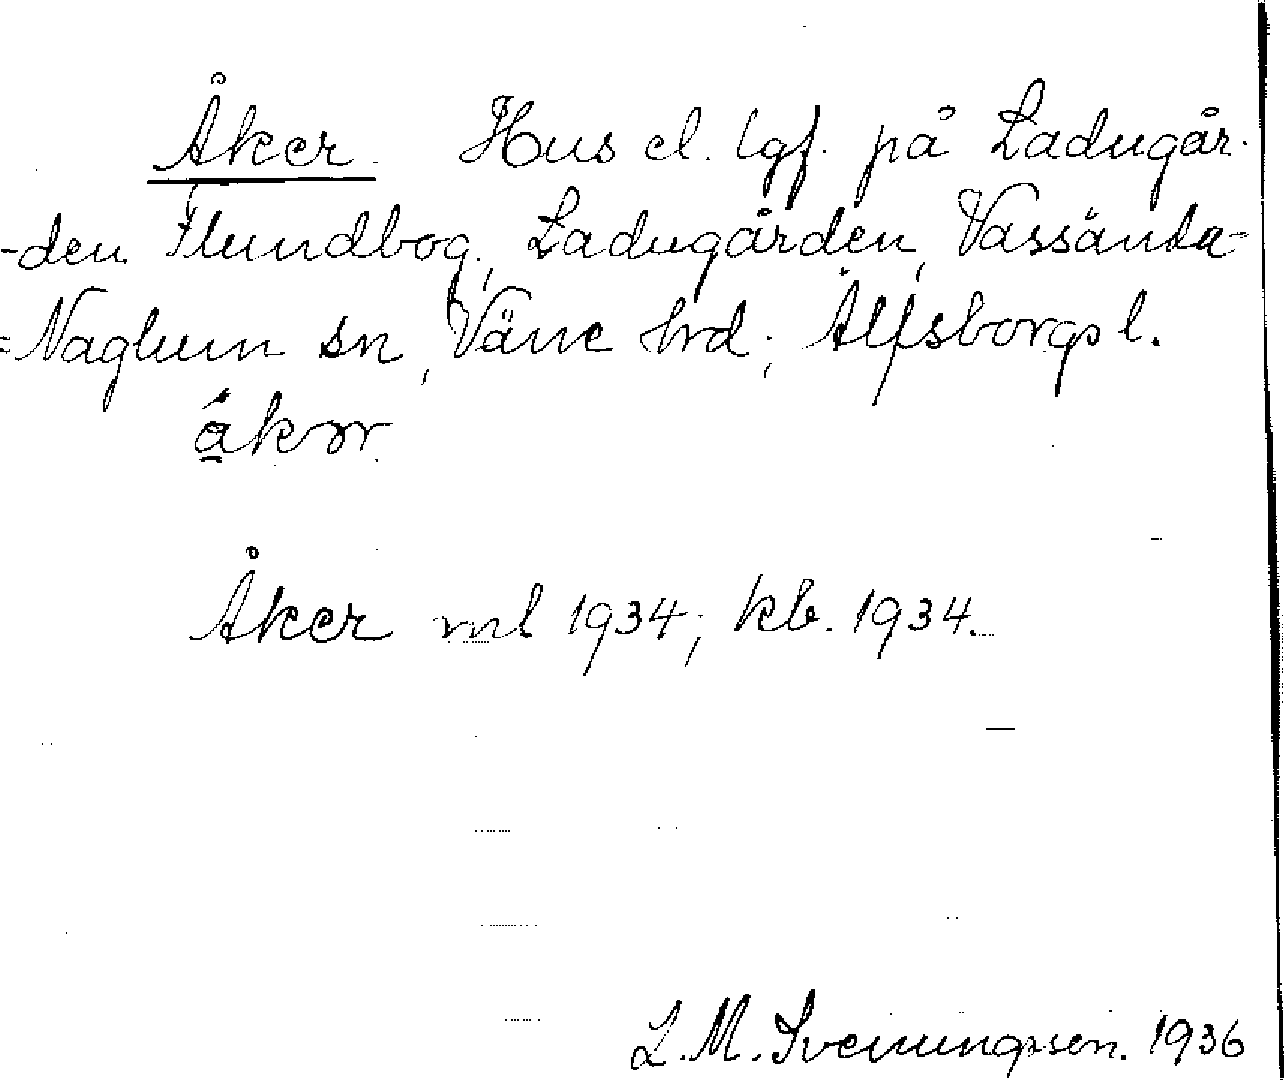 Åker. Hus el. lgf. på Ladugår-
-den Flundbog, Ladugården, Vassända-
=Naglum sn, Väne hrd; Älfsborgs l.
åkər.
Åker ml 1934; kb. 1934.
L. M. Svenungsson. 1936